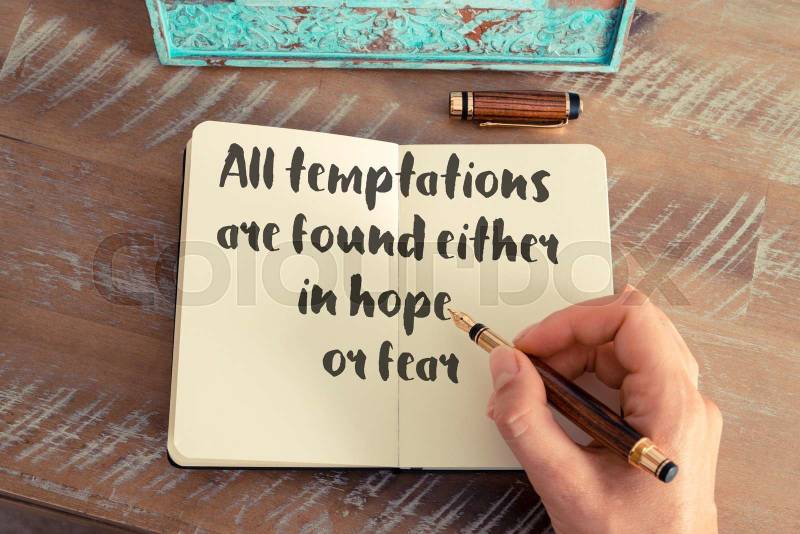 All temptations
are found either
in hope
or fear
Colourbox